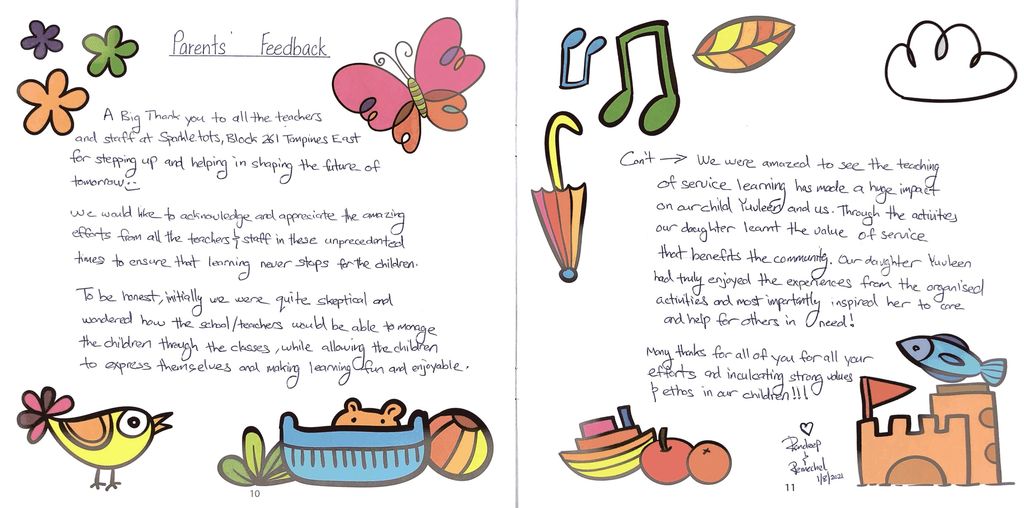 Parents' Feedback
A Big Thank you to all the teachers
and staff at Sparkletots, Block 261 Tampines East
for stepping up and helping in shaping the future of
tomorrow
We would like to acknowledge and appreciate the amazing
efforts from all the teachers & staff in these unprecedented
times to ensure that learning never stops for the children.
To be honest, initially we were quite skeptical and
wondered how the school/teachers would be able to manage
the children through the classes, while allowing the children
to express themselves and making learning fun and enjoyable.
10
Con't → We were amazed to see the teaching
of service learning has made a huge impact
on our child Yuvleen and us. Through the activities
our daughter learnt the value of service
that benefits the community. Our daughter Yuvleen
had truly enjoyed the experiences from the organised
activities and most importantly inspired her to care
and help for others in need!
Many thanks for all of you for all your
efforts and inculcating strong values
& ethos in our children!!!
&
1/8/2021
11